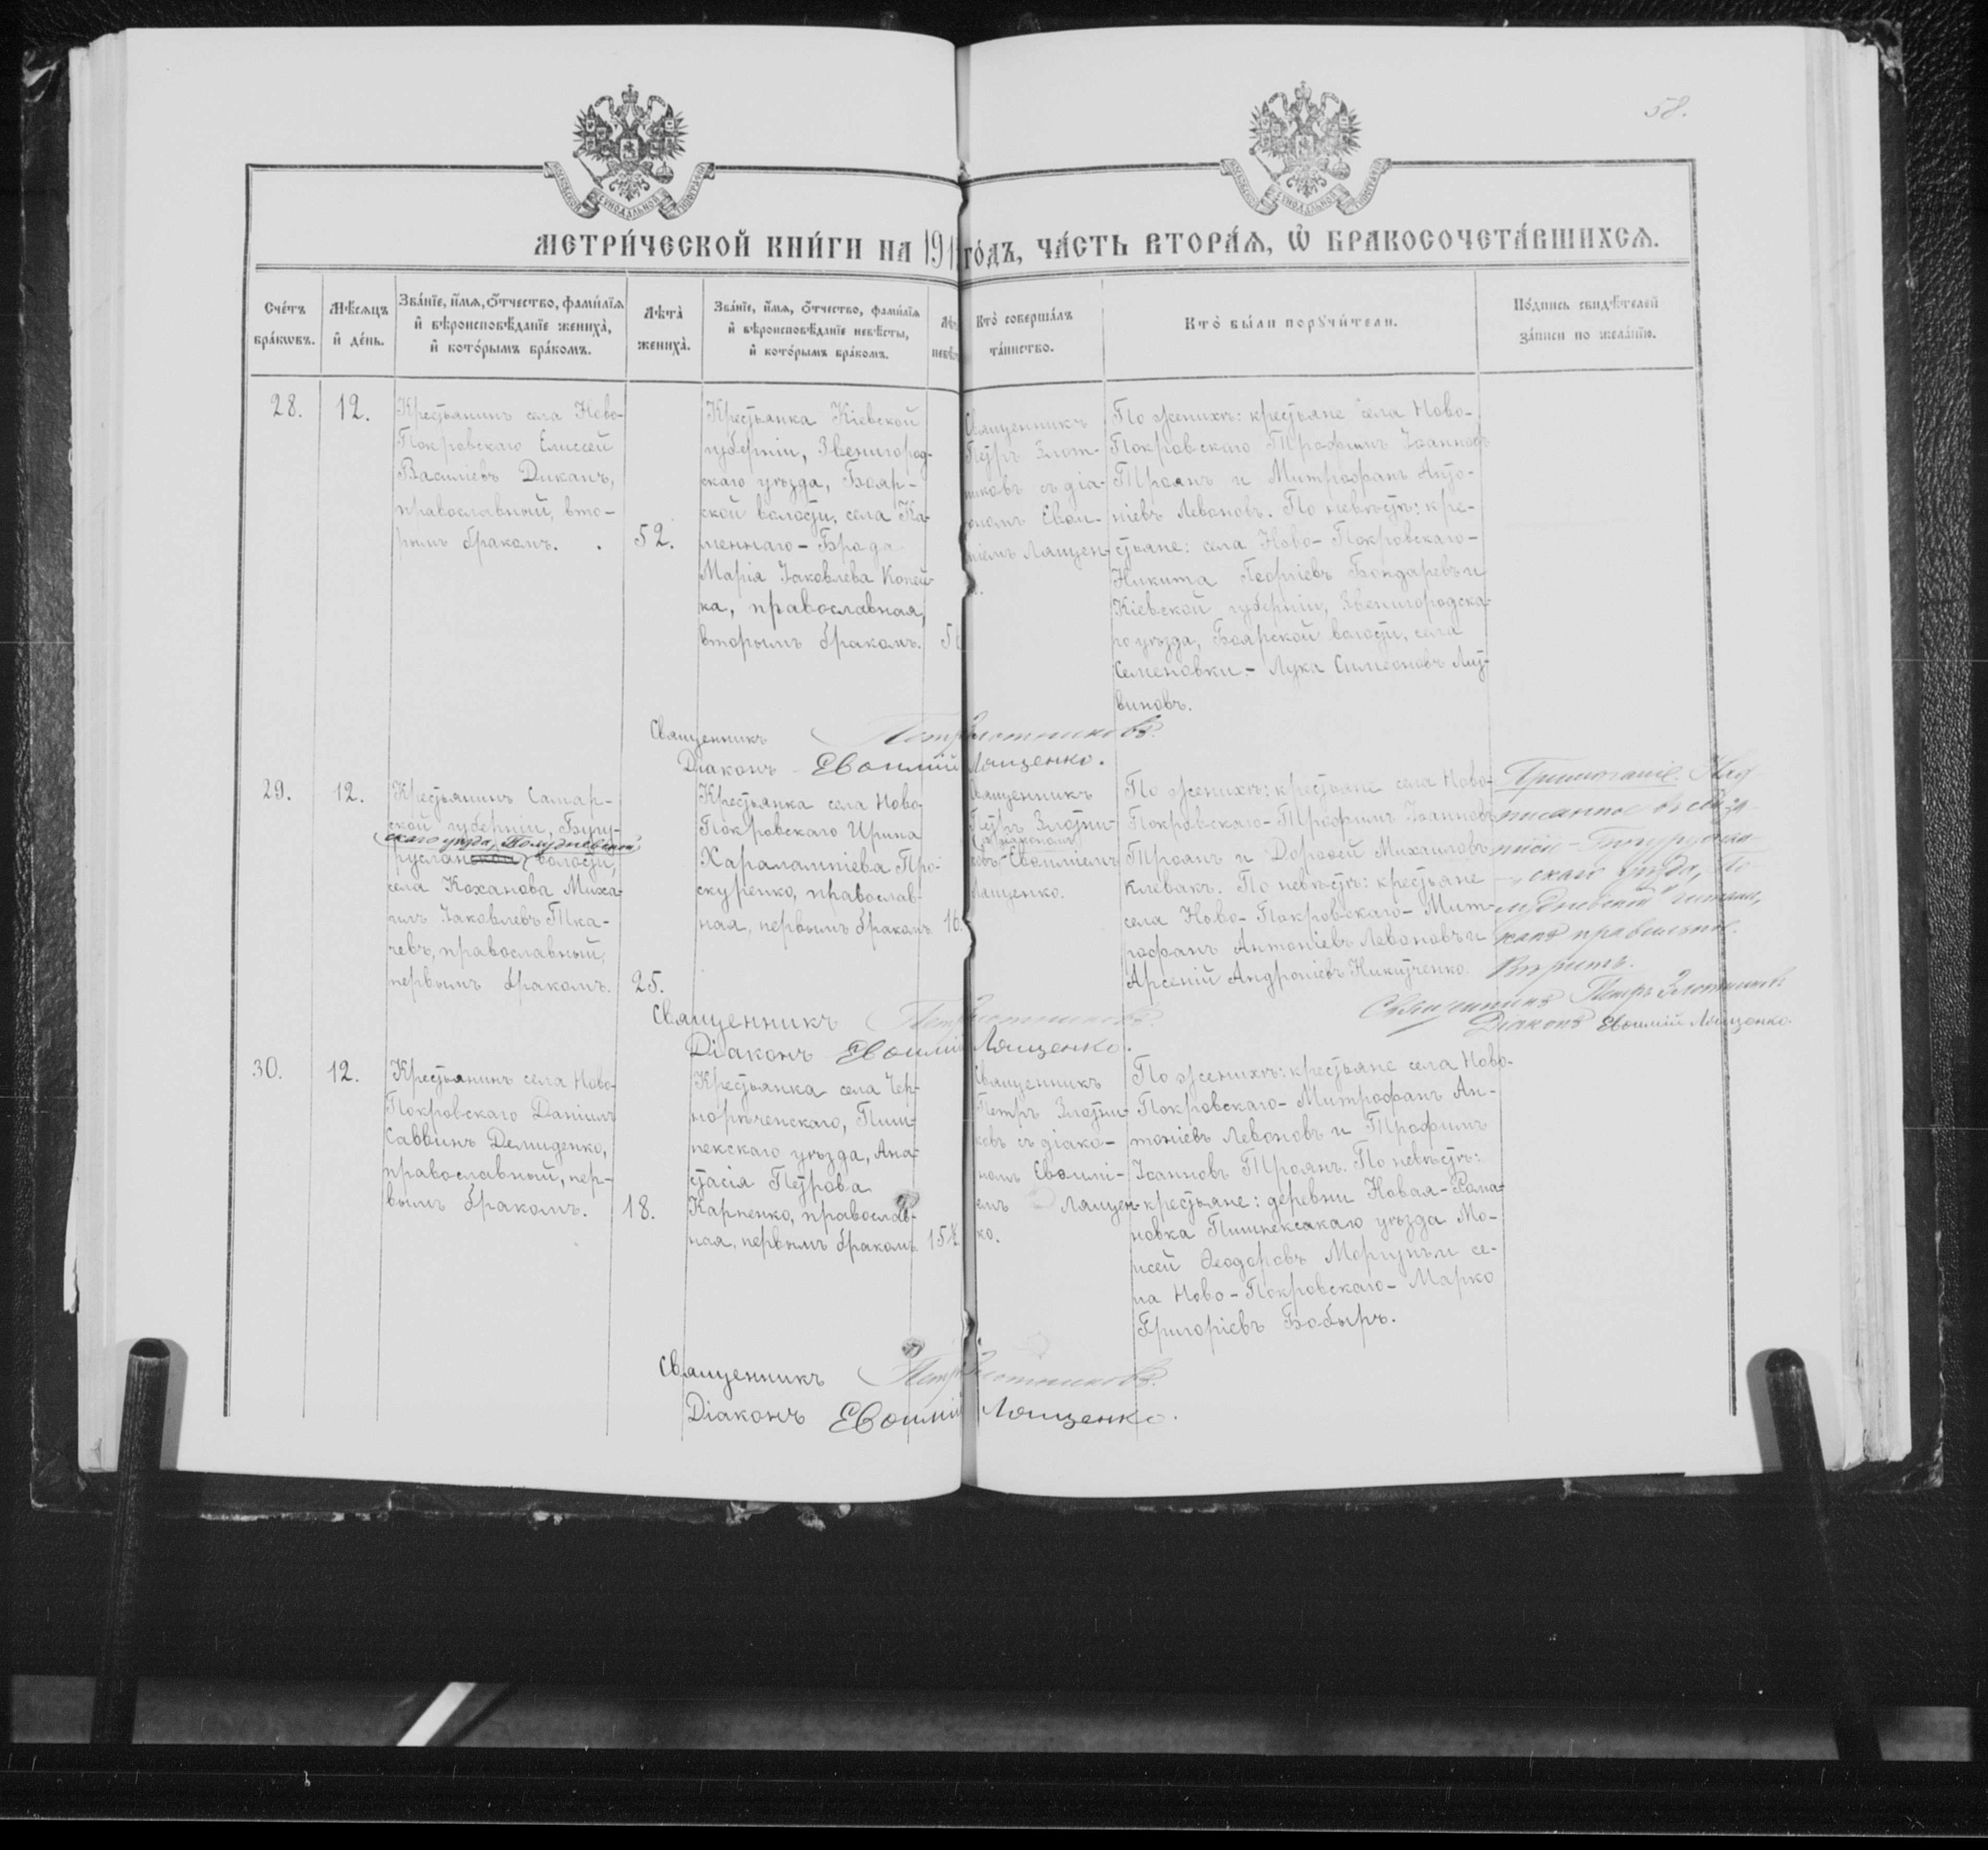 58.
МЕТРИ́ЧЕСКОЙ КНИ́ГИ НА 191 ГО́ДЪ, ЧА́СТЬ ВТОРА́Я, Ѡ҆ БРАКОСОЧЕТА́ВШИХСЯ.
Сче́тъ бра́кѡвъ.
Мѣ́сяцъ и҆ де́нь.
Зва́нїе, и҆́мя, ѻ҆́тчество, фами́лїя и҆ вѣроисповѣ́данїе жениха̀, и҆ кото́рымъ бра́комъ.
Лѣ́та̀ жениха̀.
Зва́нїе, и҆́мя, ѻ҆́тчество, фами́лїя и҆ вѣроисповѣ́данїе невѣ́сты, и҆ кото́рымъ бра́комъ.
Кто̀ соверша́лъ та́инство.
Кто̀ бы́ли порꙋчи́тели.
По́дпись свидѣ́телей за́писи по жела́нїю.
28.
12.
Крестьянинъ села Ново-
Покровскаго Елиссей
Василіевъ Диканъ,
православный, вто-
рымъ бракомъ.
52.
Крестьянка Кіевской
губерніи, Звенигород-
скаго уѣзда, Бояр-
ской волости, села Ка-
меннаго-Брода
Марія Іаковлева Копей-
ка, православная,
вторымъ бракомъ.
Священникъ
Петръ Злот-
никовъ съ діа-
кономъ Евѳи-
міемъ Лящен-
По женихѣ: крестьяне села Ново-
Покровскаго Трофимъ Іоанновъ
Троянъ и Митрофанъ Анто-
ніевъ Левоновъ. По невѣстѣ: кре-
стьяне: села Ново-Покровскаго-
Никита Георгіевъ Бондаревъ и
Кіевской губерніи, Звенигородска-
го уѣзда, Боярской волости, села
Семеновки.- Лука Симеоновъ Лит-
виновъ.
Священникъ Петръ Злотниковъ.
Діаконъ Евѳимій Лященко.
29.
12.
Крестьянинъ Самар-
ской губерніи, Бугу-
скаго уѣзда, Полудневской
русланской волости,
села Коханова Миха-
илъ Іаковлевъ Тка-
чевъ, православный,
первымъ бракомъ.
25.
Крестьянка села Ново-
Покровскаго Ирина
Харалампіева Про-
скуренко, православ-
ная, первымъ бракомъ.
16.
Священникъ
Петръ Злотни-
съ діакономъ
ковъ Евѳиміемъ
Лященко.
По женихѣ: крестьяне села Ново-
Покровскаго-Трофимъ Іоанновъ
Троянъ и Дороѳей Михаиловъ
Клевакъ. По невѣстѣ: крестьяне
села Ново-Покровскаго-Мит-
рофанъ Антоніевъ Левоновъ и
Арсеній Андроніевъ Никитченко.
Примѣчаніе. Над-
писанное
скаго уѣзда, По-
лудневской читать,
какъ правильное.
Вѣрить.
Священникъ Петръ Злотниковъ
Діаконъ Евѳимій Лященко.
Священникъ Петръ Злотниковъ.
Діаконъ Евѳимій Лященко.
30.
12.
Крестьянинъ села Ново-
Покровскаго Даніилъ
Саввинъ Демиденко,
православный, пер-
вымъ бракомъ.
18.
Крестьянка села Чер-
норѣченскаго, Пиш-
пекскаго уѣзда, Ана-
стасія Петрова
Карпенко, православ-
ная, первымъ бракомъ.
Священникъ
Петръ Злотни-
ковъ съ діако-
номъ Евѳимі-
емъ Лящен-
ко.
По женихѣ: крестьяне села Ново-
Покровскаго-Митрофанъ Ан-
тоніевъ Левоновъ и Трофимъ
Іоанновъ Троянъ. По невѣстѣ:
крестьяне: деревни Новая-Рома-
новка Пишпекскаго уѣзда Мо-
исей Ѳеодоровъ Моргунъ и се-
ла Ново-Покровскаго-Марко
Григоріевъ Бобырь.
Священникъ Петръ Злотниковъ.
Діаконъ Евѳимій Лященко.